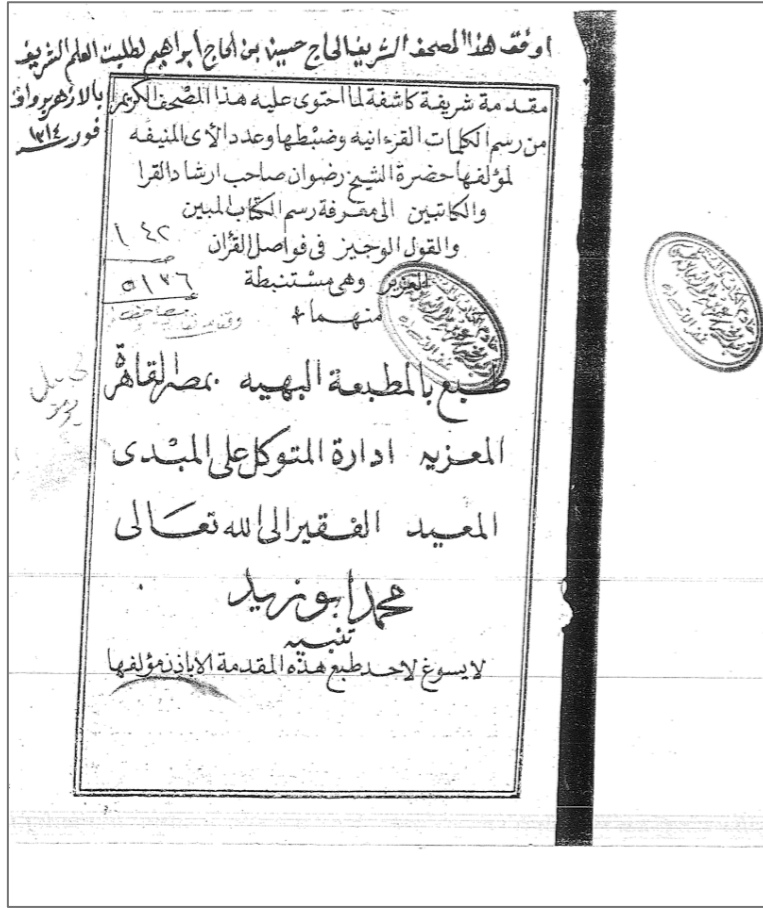 اوقف هذا المصحف الشريف الحاج حسين بن الحاج ابراهيم لطلبت العلم الشريف
بالازهر
١٣١٤
مقدمة شريفة كاشفة لما احتوى عليه هذا المصحف الكريم
من رسم الكلمات القرءانيه وضبطها وعدد الآى المنيفه
لمؤلفها حضرة الشيخ رضوان صاحب ارشاد القرا
والكاتبين الى معرفة رسم الكتاب المبين
والقول الوجيز فى فواصل القرأن
العزيز وهى مستنبطة
منهما
١٤٢
٥١٣٦
مصاحف
طبع بالمطبعة البهيه بمصر القاهرة
المعزيه ادارة المتوكل على المبدى
المعيد الفقير الى الله تعالى
محمد ابو زيد
تنبيه
لايسوغ لاحد طبع هذه المقدمة الا باذن مؤلفها